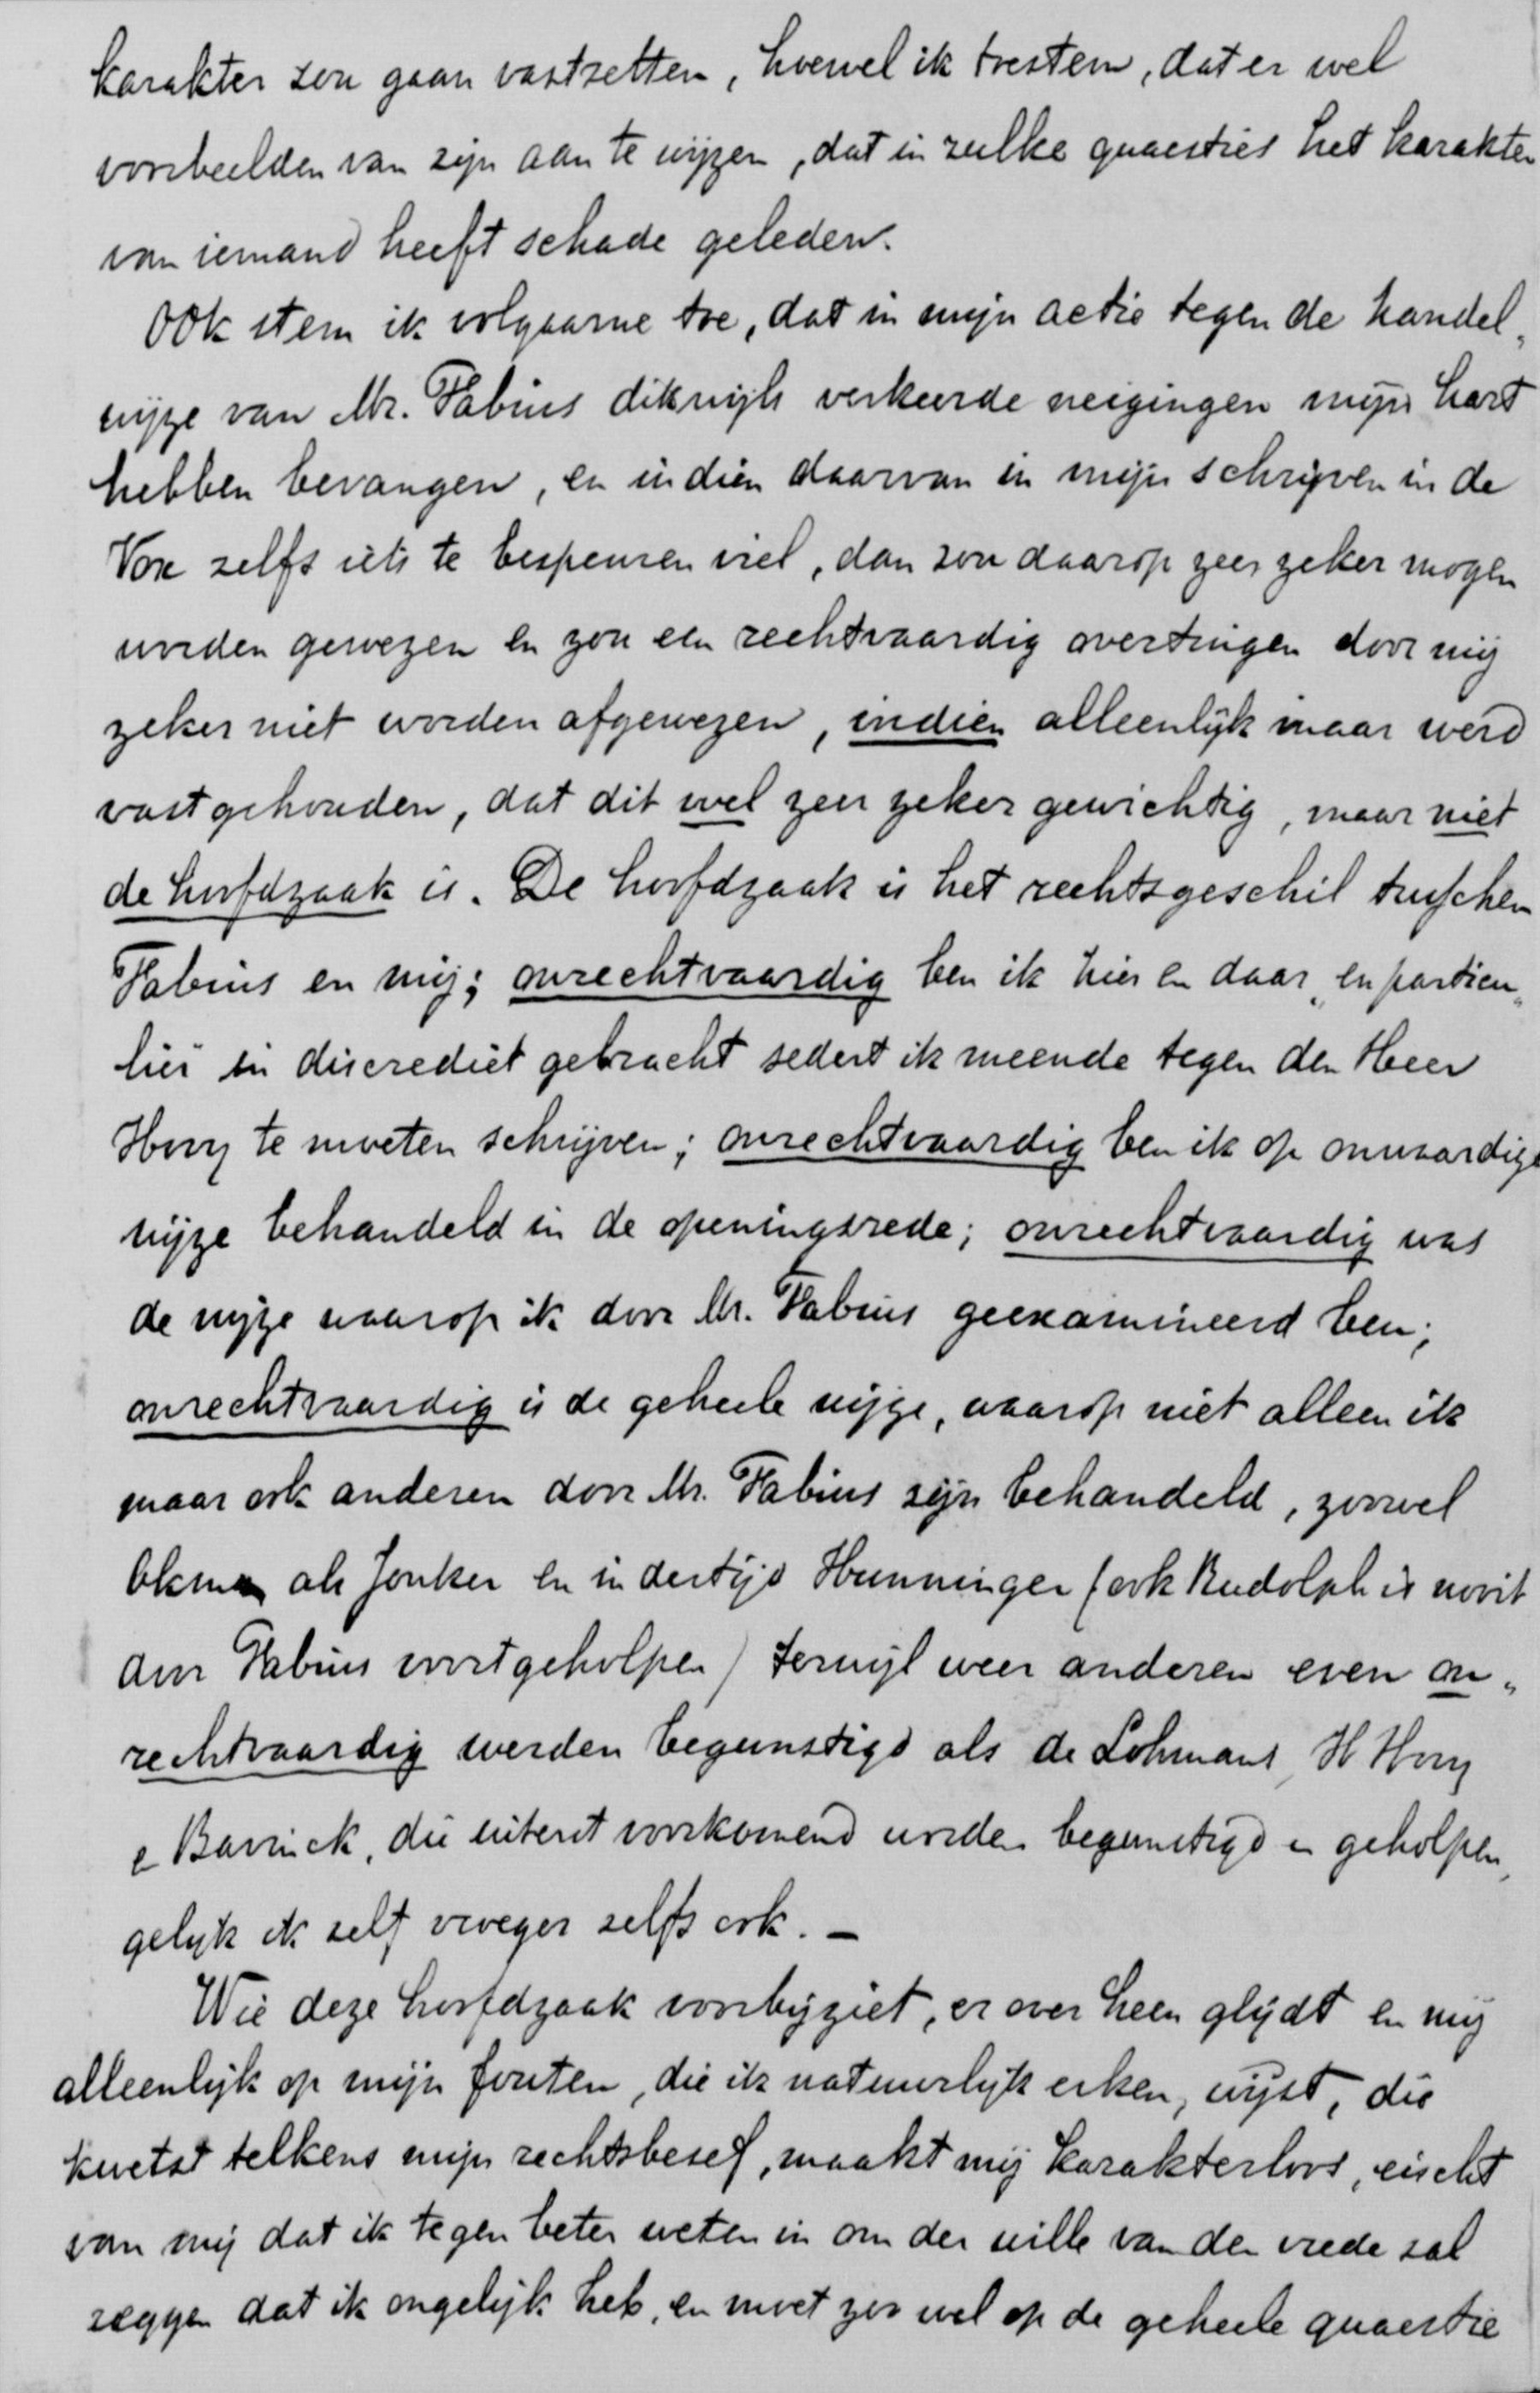 karakter zou gaan vastzetten, hoewel ik toestem, dat er wel
voorbeelden van zijn aan te wijzen, dat in zulke quaesties het karakter
van iemand heeft schade geleden.
Ook stem ik volgaarne toe, dat in mijn actie tegen de handel„
wijze van Mr. Fabius dikwijls verkeerde neigingen mijn hart
hebben bevangen, en indien daarvan in mijn schrijven in de
Vox zelfs iets te bespeuren viel, dan zou daarop zeer zeker mogen
worden gewezen en zou een rechtvaardig overtuigen door mij
zeker niet worden afgewezen, indien alleenlijk maar werd
vastgehouden, dat dit wel zeer zeker gewichtig, maar niet
de hoofdzaak is. De hoofdzaak is het rechtsgeschil tusschen
Fabius en mij; onrechtvaardig ben ik hier en daar „en particu„
lier" in discrediet gebracht sedert ik meende tegen den Heer
Hovy te moeten schrijven; onrechtvaardig ben ik op onwaardige
wijze behandeld in de openingsrede; onrechtvaardig was
de wijze waarop ik door Mr. Fabius geexamineerd ben;
onrechtvaardig is de geheele wijze, waarop niet alleen ik
maar ook anderen door Mr. Fabius zijn behandeld, zoowel
als Jonker en indertijd Hunninger (ook Rudolph is nooit
door Fabius voortgeholpen) terwijl weer anderen even on„
rechtvaardig werden begunstigd als de Lohmans, H Hovy
e Bavinck, die uiterst voorkomend worden begunstigd en geholpen,
gelijk ik zelf vroeger zelfs ook. –
Wie deze hoofdzaak voorbijziet, er over heen glijdt en mij
alleenlijk op mijn fouten, die ik natuurlijk erken, wijst, die
kwetst telkens mijn rechtsbesef, maakt mij karakterloos, eischt
van mij dat ik tegen beter weten in om der wille van den vrede zal
zeggen dat ik ongelijk heb, en moet zoo wel op de geheele quaestie